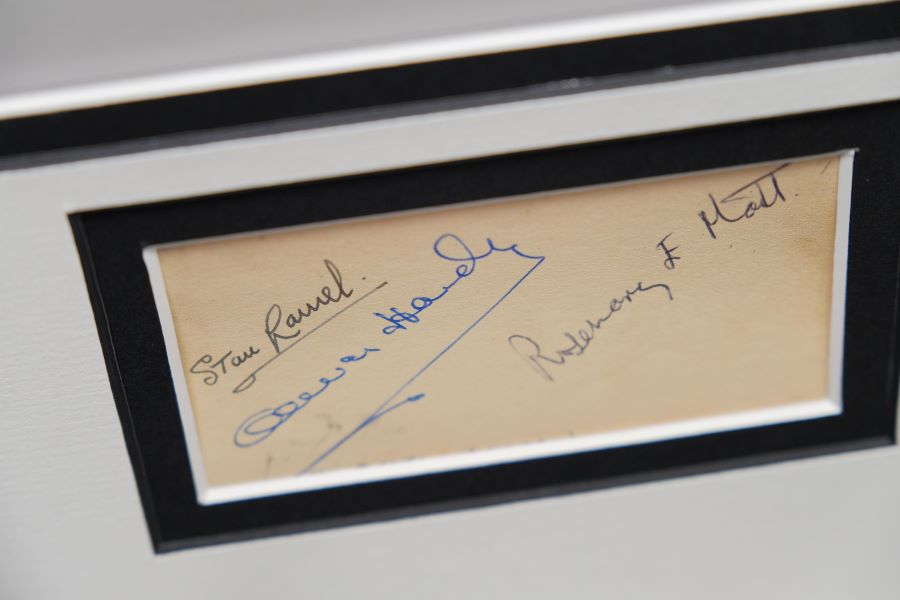 Stan Laurel.
Oliver Hardy
Rosemary E Matt.